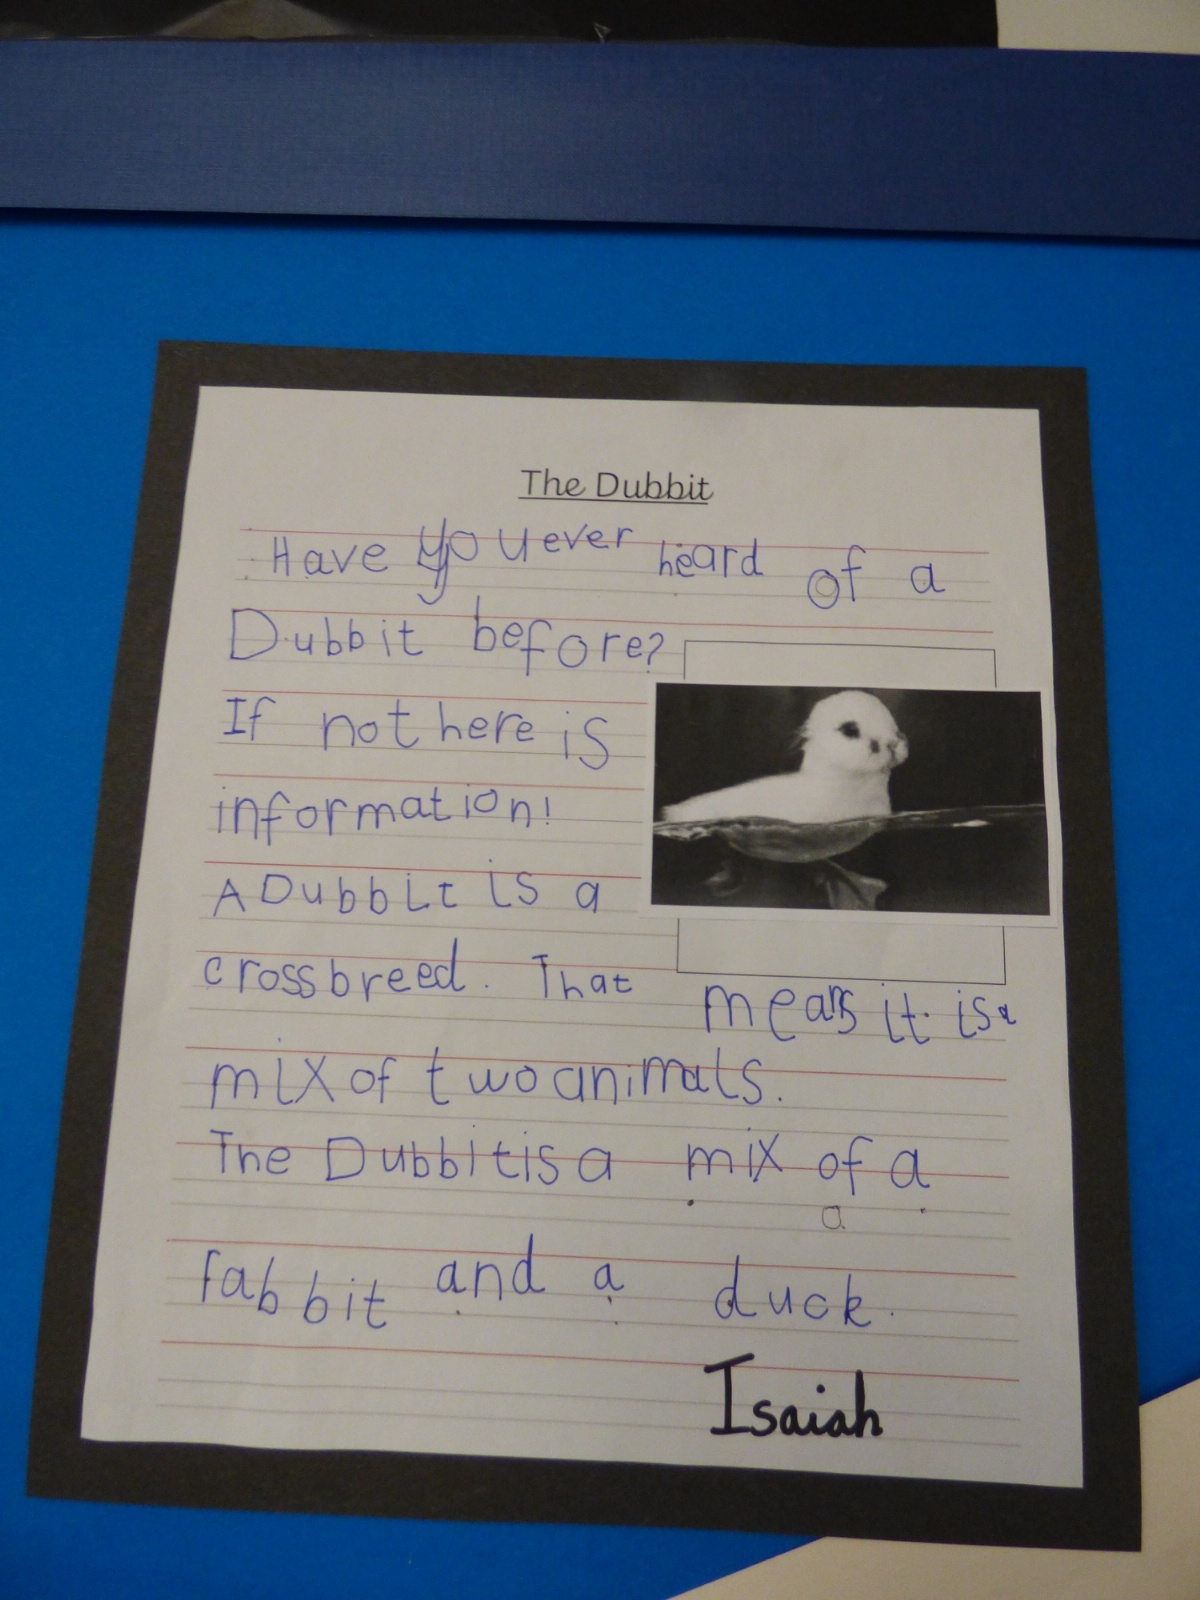 The Dubbit
Have you ever heard of a
Dubbit before?
If not here is
information!
A Dubbit is a
crossbreed. That means it is a
mix of two animals.
The Dubbit is a mix of a
a
rabbit and a duck.
Isaiah